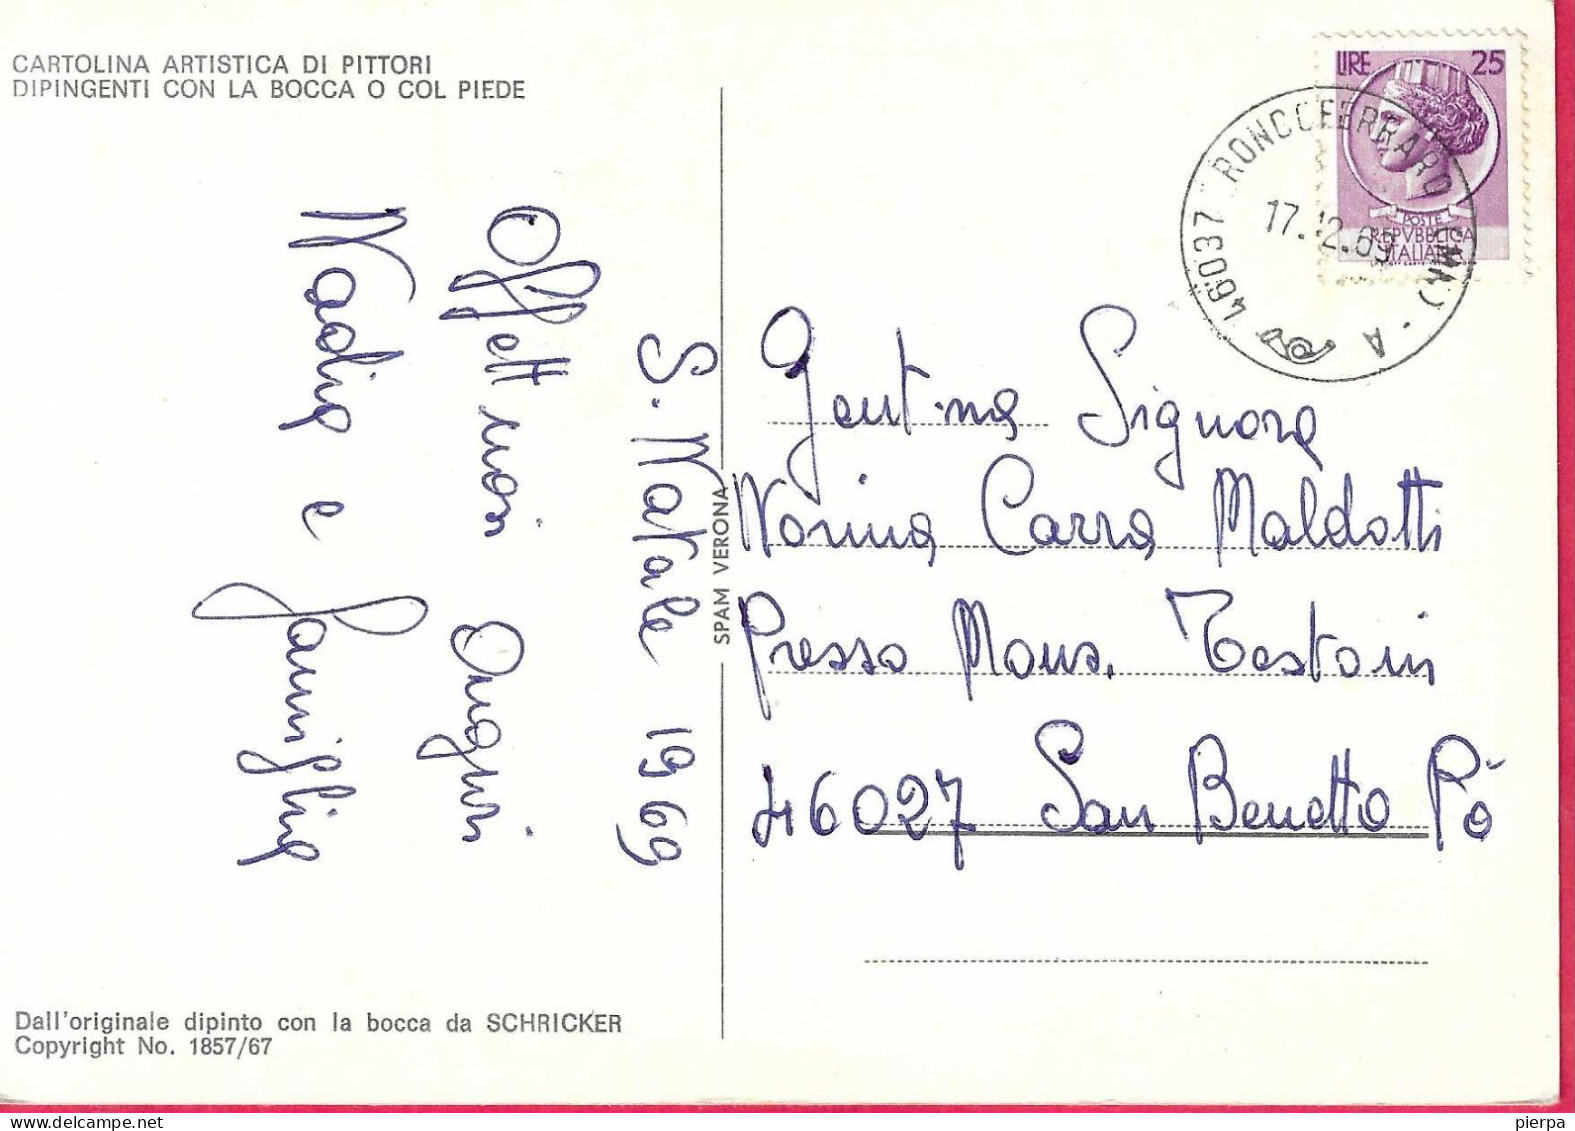 CARTOLINA ARTISTICA DI PITTORI
DIPINGENTI CON LA BOCCA O COL PIEDE
S. Natale 1969
Affettuosi Auguri
Nadia e famiglia
SPAM VERONA
LIRE 25
POSTE
REPVBBLICA
ITALIANA
46037 RONCOFERRARO (MN) · A
17.12.69
Gent.ma Signora
Norina Carra Maldotti
Presso Mons. Testoni
46027 San Benetto Pò
Dall'originale dipinto con la bocca da SCHRICKER
Copyright No. 1857/67
pierpa